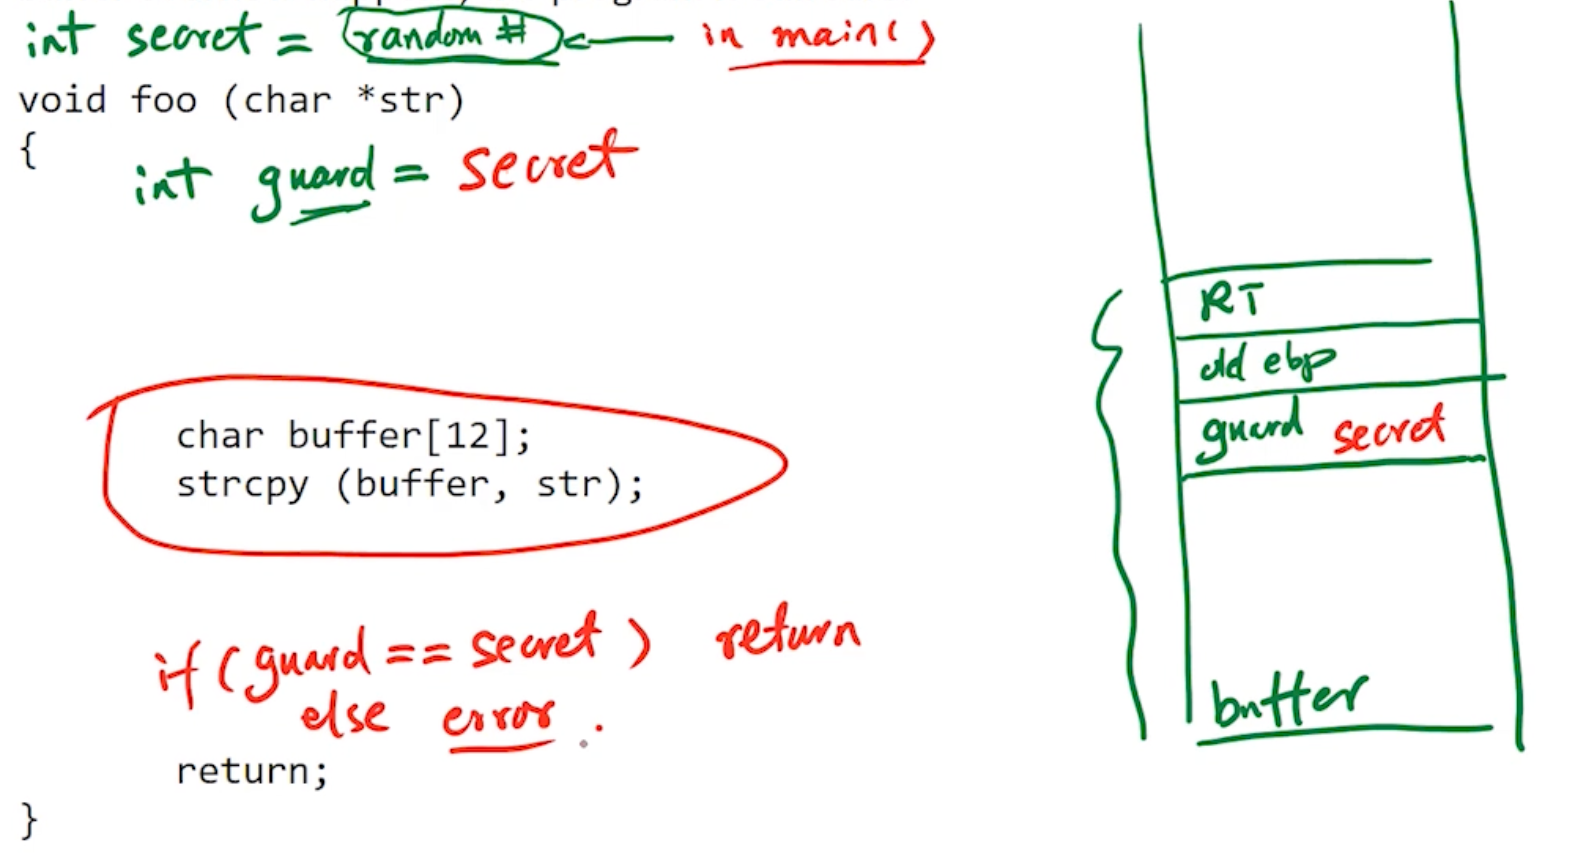 int secret = random # ← in main()
void foo (char *str)
{
int guard = secret
char buffer[12];
strcpy (buffer, str);
if (guard == secret) return
else error.
return;
}
RT
old ebp
guard secret
buffer